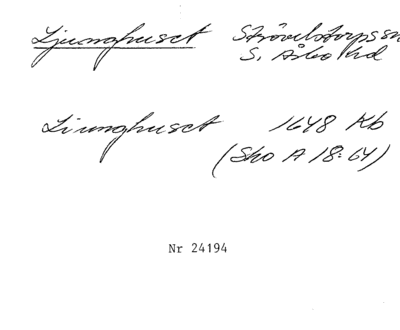 Ljunghuset Strövelstorps sn
S. Åsbo hd
Liunghuset 1648 Kb
(Sko A 18:64)
Nr 24194